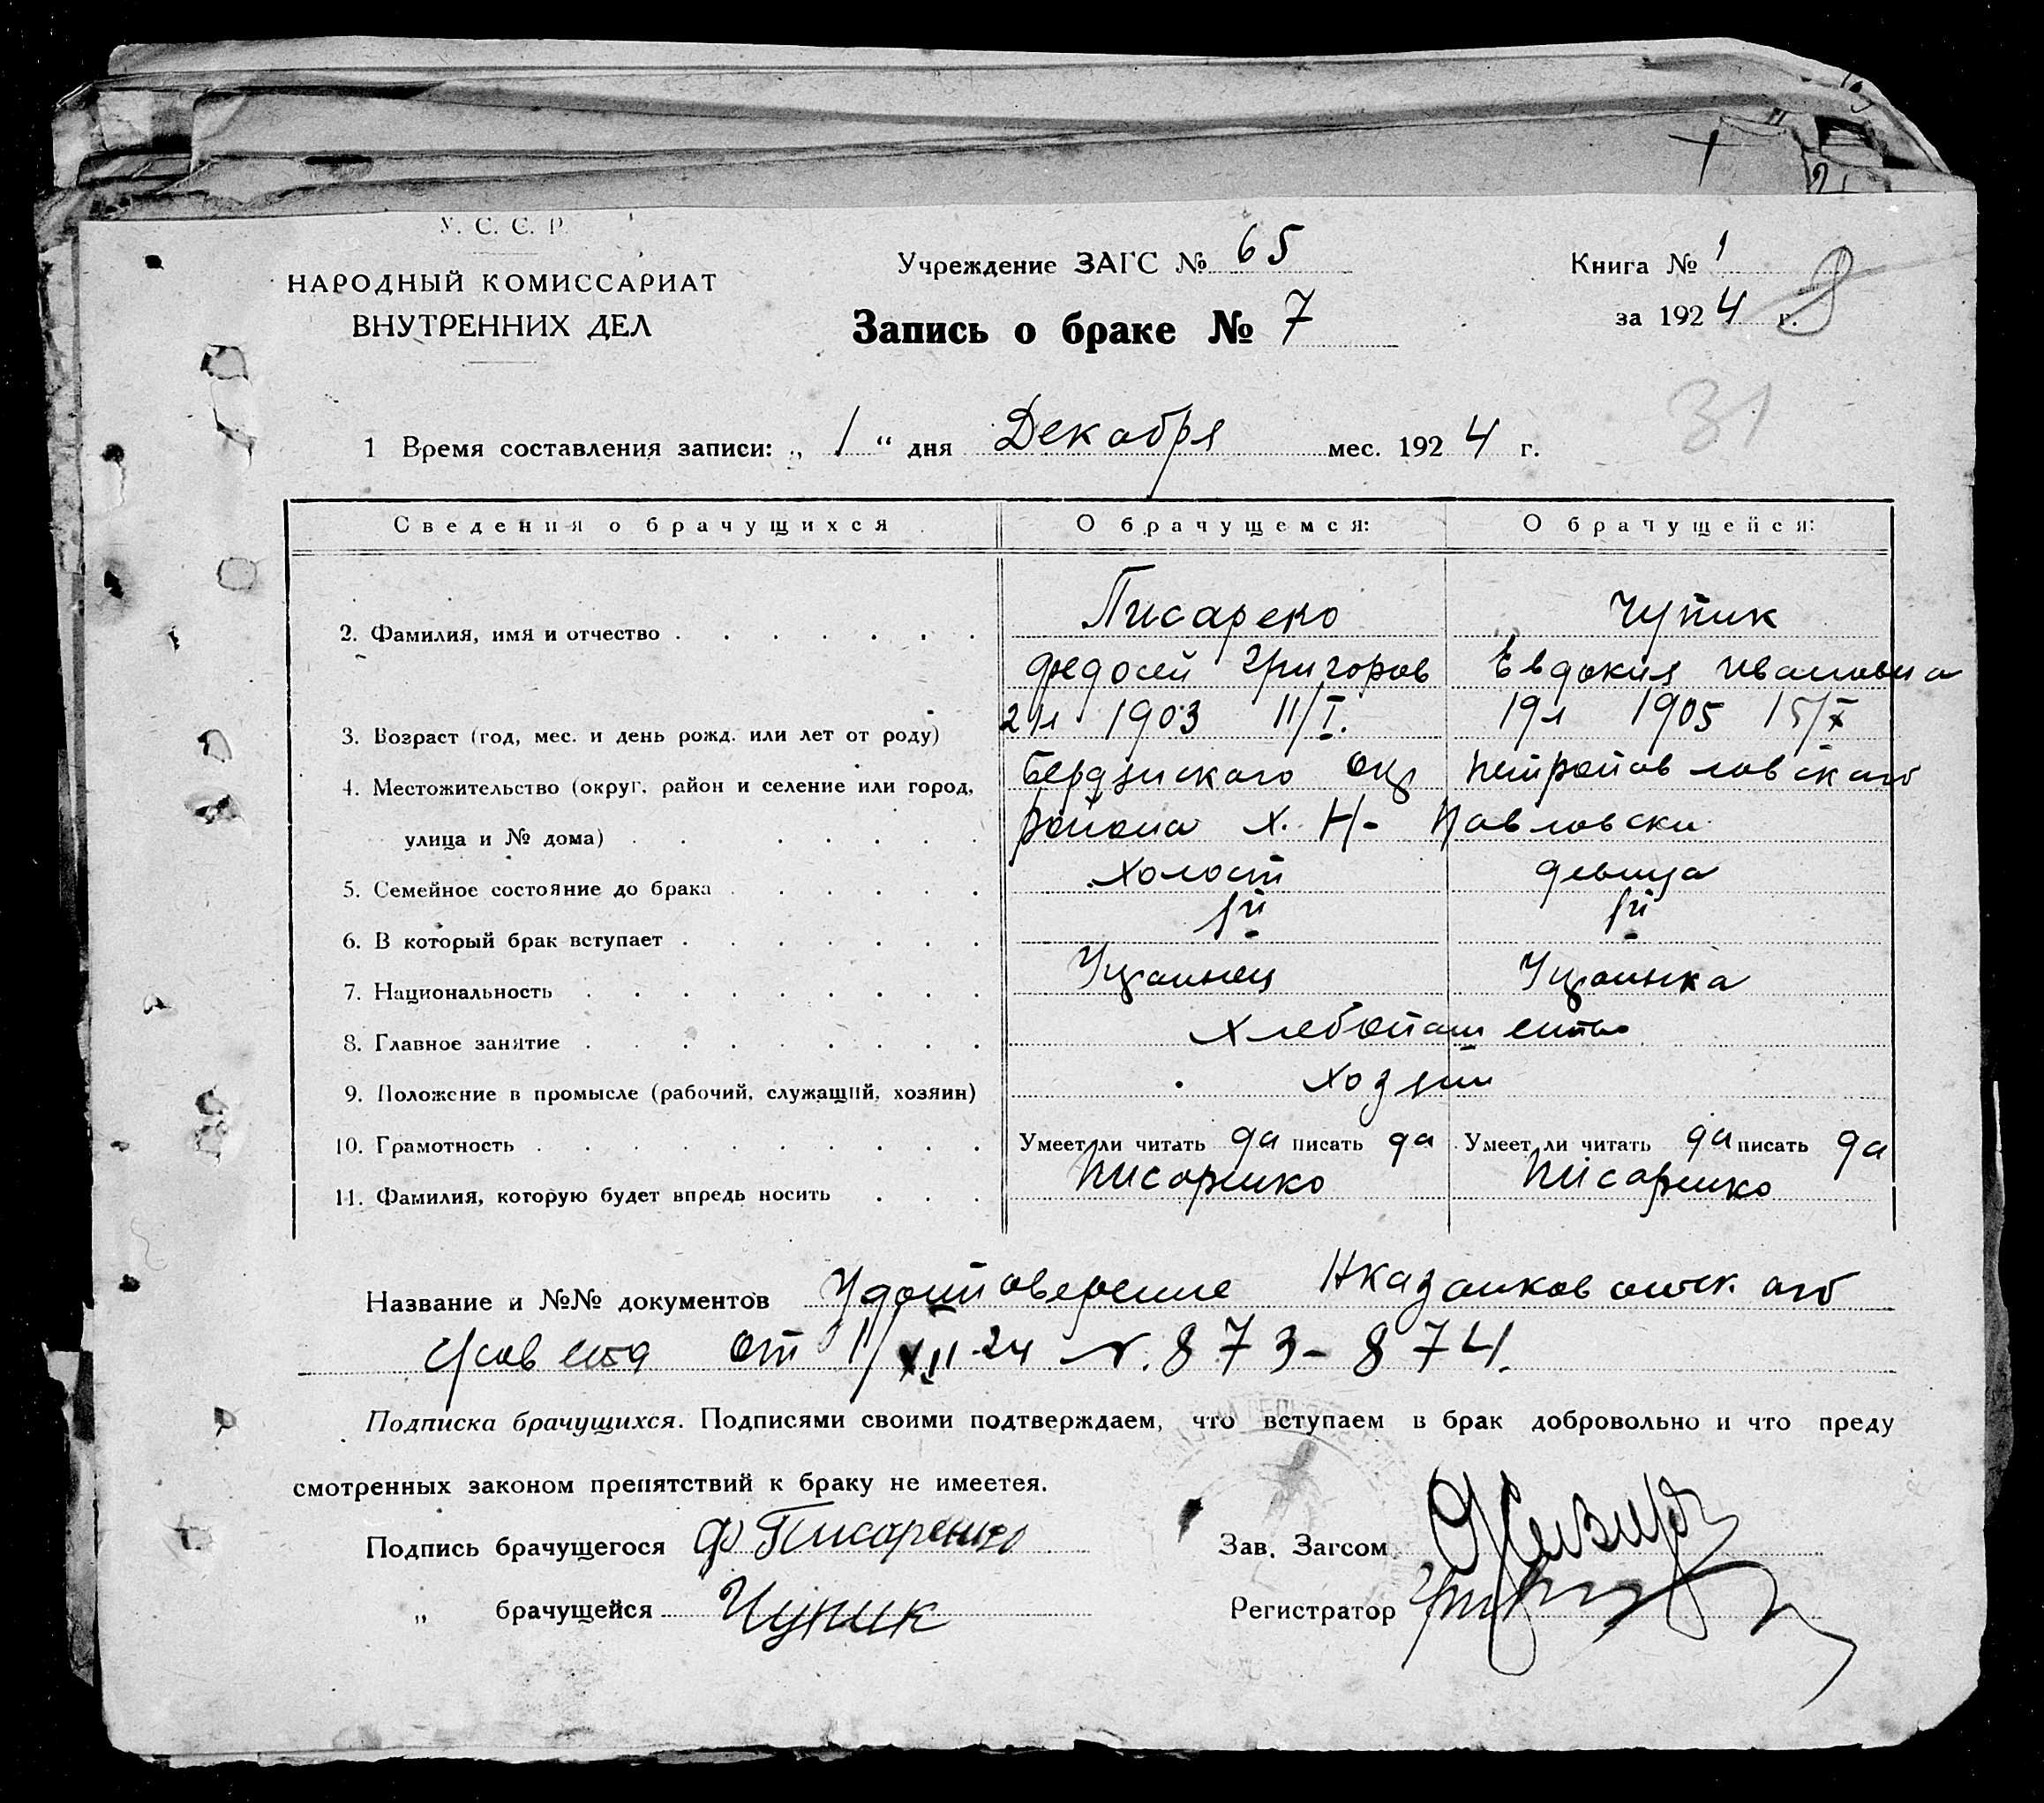 У. С. С. Р.
НАРОДНЫЙ КОМИССАРИАТ
ВНУТРЕННИХ ДЕЛ
Учреждение ЗАГС № 65
Запись о браке № 7
Книга № 1
за 1924 г. 8
31
1 Время составления записи: „ 1 “ дня Декабря мес. 1924 г.
Сведения о брачущихся О брачущемся: О брачущейся:
2. Фамилия, имя и отчество Писаренко Чупик
Федосей Григоров Евдокия Ивановна
3. Возраст (год, мес. и день рожд. или лет от роду) 21л 1903 11/I. 19л 1905 15/X
4. Местожительство (округ, район и селение или город, Бердянского окр Петропавловского
улица и № дома) района х. Н- Павловски
5. Семейное состояние до брака холост девица
6. В который брак вступает 1й 1й
7. Национальность Украинец Украинка
8. Главное занятие Хлебопашество
9. Положение в промысле (рабочий, служащий, хозяин) хозяин
10. Грамотность Умеет ли читать да писать да Умеет ли читать да писать да
11. Фамилия, которую будет впредь носить Писаренко Писаренко
Название и №№ документов Удостоверение
от 1/XII 24 N. 873-874.
Подписка брачущихся. Подписями своими подтверждаем, что вступаем в брак добровольно и что преду
смотренных законом препятствий к браку не имеетея.
Подпись брачущегося Ф Писаренко Зав. Загсом
„ брачущейся Чупик Регистратор